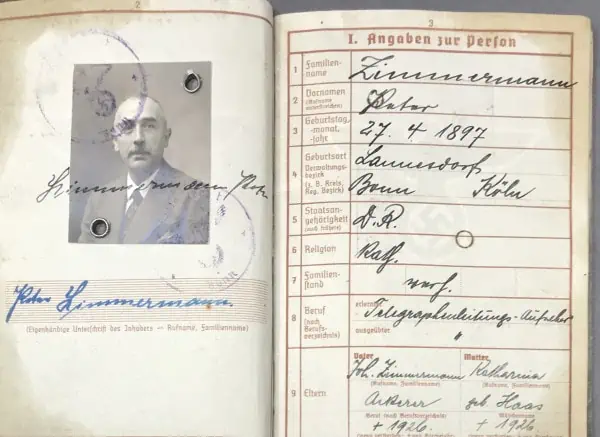 2
Zimmermann
Peter Zimmermann
(Eigenhändige Unterschrift des Inhabers — Rufname, Familienname)
3
I. Angaben zur Person
1 Familien-
name
Zimmermann
2 Vornamen
(Rufname
unterstreichen)
Peter
3 Geburtstag,
-monat,
-jahr
27. 4 1897
4 Geburtsort
Verwaltungs-
bezirk
(z. B. Kreis,
Reg. Bezirk)
Lannesdorf
Bonn Köln
5 Staatsan-
gehörigkeit
(auch frühere)
D.R.
6 Religion
Kath.
7 Familien-
stand
verh.
8 Beruf
(nach
Berufs-
verzeichnis)
erlernter
Telegraphenleitungs-Aufseher
ausgeübter
"
9 Eltern
Vater Mutter
Joh. Zimmermann Katharina
(Rufname, Familienname) (Rufname, Familienname)
Ackerer geb Haas
Beruf (nach Berufsverzeichnis) Mädchenname
+ 1926. + 1926